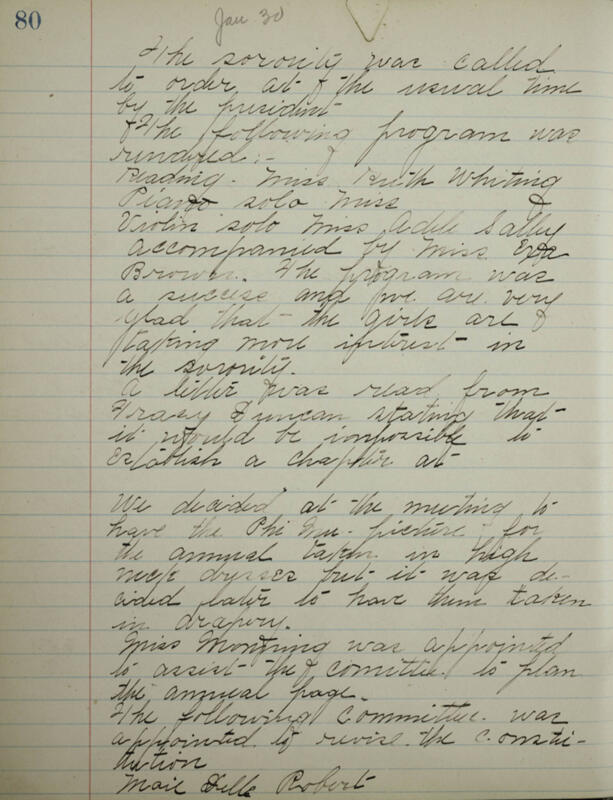 80
Jan 30
The sorority was called
to order at the usual time
by the president
The following program was
rendered:-
Reading - Miss Ruth Whiting
Piano solo Miss
Violin solo Miss Adele Salley
accompanied by Miss Eva
Brown. The program was
a success and we are very
glad that the girls are
taking more interest in
the sorority.
A letter was read from
Duncan stating that
it would be impossible to
establish a chapter at
We decided at the meeting to
have the Phi Mu picture for
the annual taken in high
neck dresses but it was de-
cided later to have them taken
in drapery.
Miss was appointed
to assist the comittee to plan
the annual page.
The following committee was
appointed to revise the consti-
tution
Belle Robert